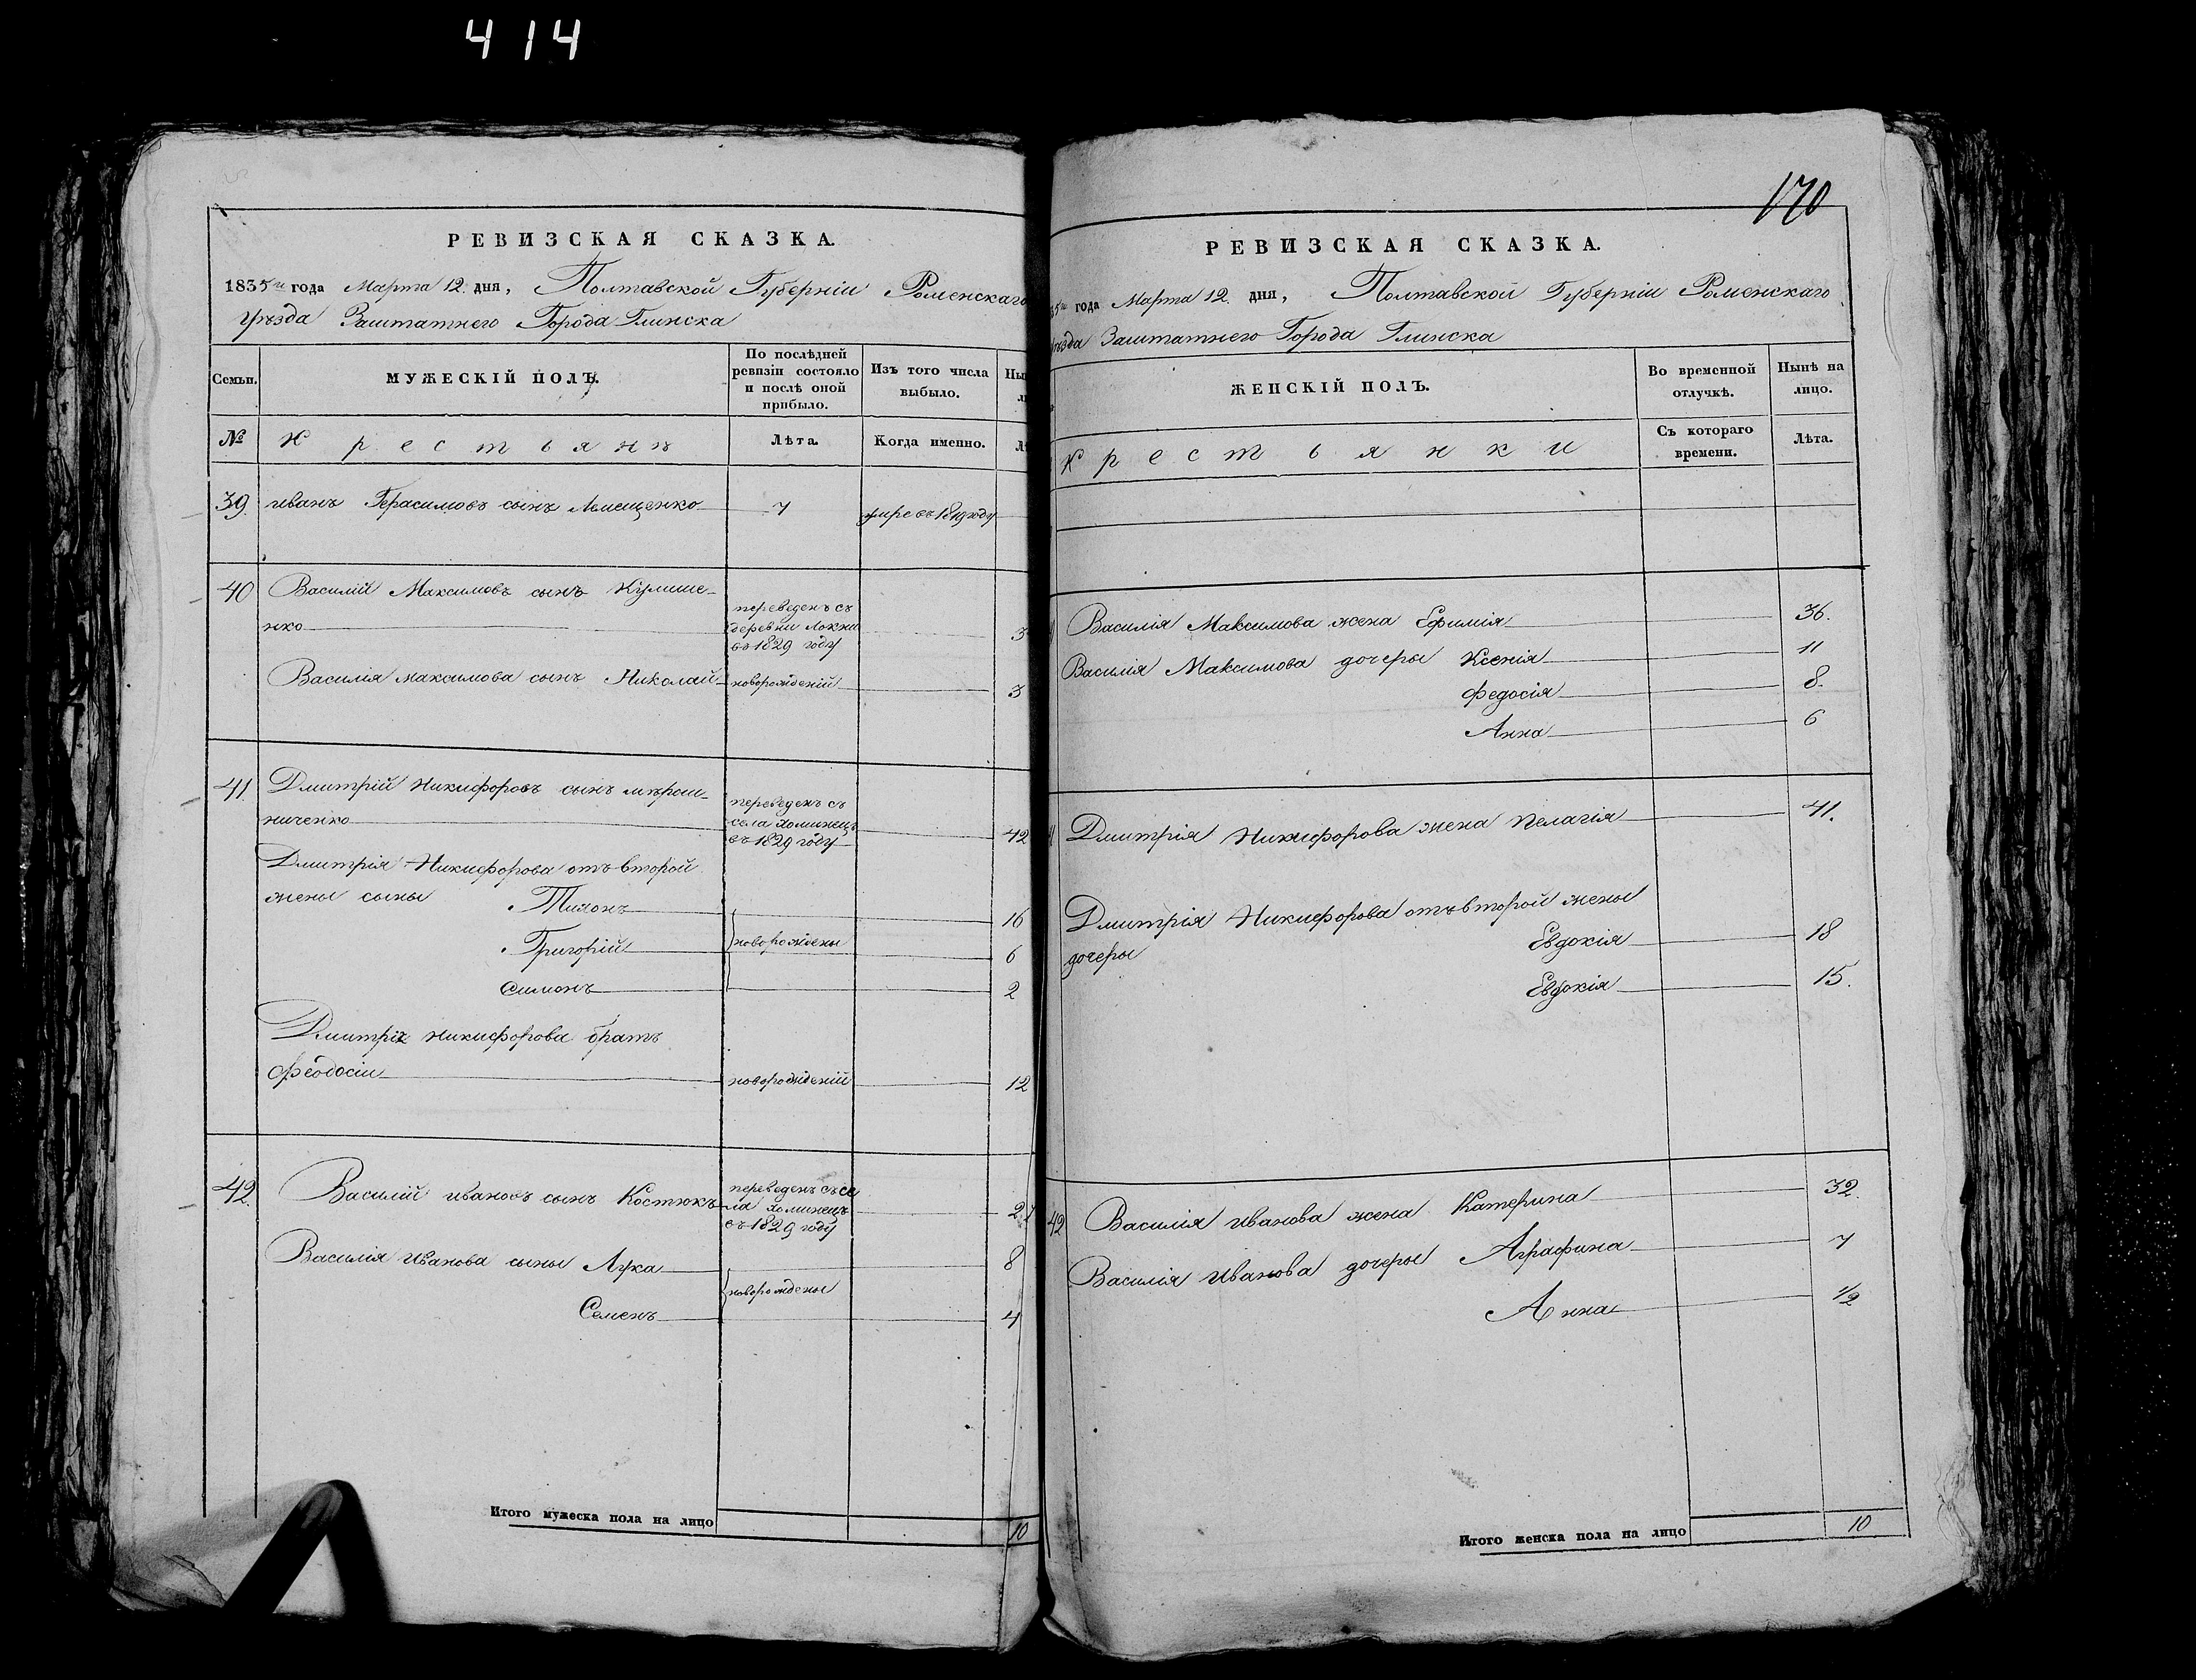 414
РЕВИЗСКАЯ СКАЗКА.
1835го года Марта 12. дня, Полтавской Губерніи Роменскаго
Уѣзда Заштатнего Города Глинска
Семьи. МУЖЕСКІЙ ПОЛЪ. По послѣдней ревизіи состояло и послѣ оной прибыло. Изъ того числа выбыло.
№ Крестьянъ Лѣта. Когда именно.
39. иванъ Герасимовъ сынъ 7 умре въ 1819 году
40 Василій Максимовъ сынъ Кулише-
нко переведенъ съ
деревни Локни
въ 1829 году 3
Василія максимова сынъ Николай новорождений 3
41. Дмитрій Никифоровъ сынъ мѣрош-
ниченко переведенъ съ
села хоминецъ
въ 1829 году 42
Дмитрія Никифорова отъ второй
жены сыны Тихонъ 16
Григорій новорождены 6
Симонъ 2
Дмитрія Никифорова братъ
Феодосіи новорождений 12
42. Василій ивановъ сынъ Костюкъ переведенъ съ се
ла хоминецъ
въ 1829 году
Василія иванова сыны Лука 8
новорождены
Семенъ 4
Итого мужеска пола на лицо 10
170
РЕВИЗСКАЯ СКАЗКА.
года Марта 12. дня, Полтавской Губерніи Роменскаго
Заштатнего Города Глинска
ЖЕНСКІЙ ПОЛЪ. Во временной отлучкѣ. Нынѣ на лицо.
Крестьянки Съ котораго времени. Лѣта.
Василія Максимова жена Ефимія 36.
Василія Максимова дочеры Ксенія 11
Федосія 8.
Анна 6
Дмитрія Никифорова жена Пелагія 41.
Дмитрія Никифорова отъ второй жены
дочеры Евдокія 18
Евдокія 15.
42 Василія иванова жена Катерина 32.
Василія иванова дочеры Аграфина 7
Анна 1/2
Итого женска пола на лицо 10